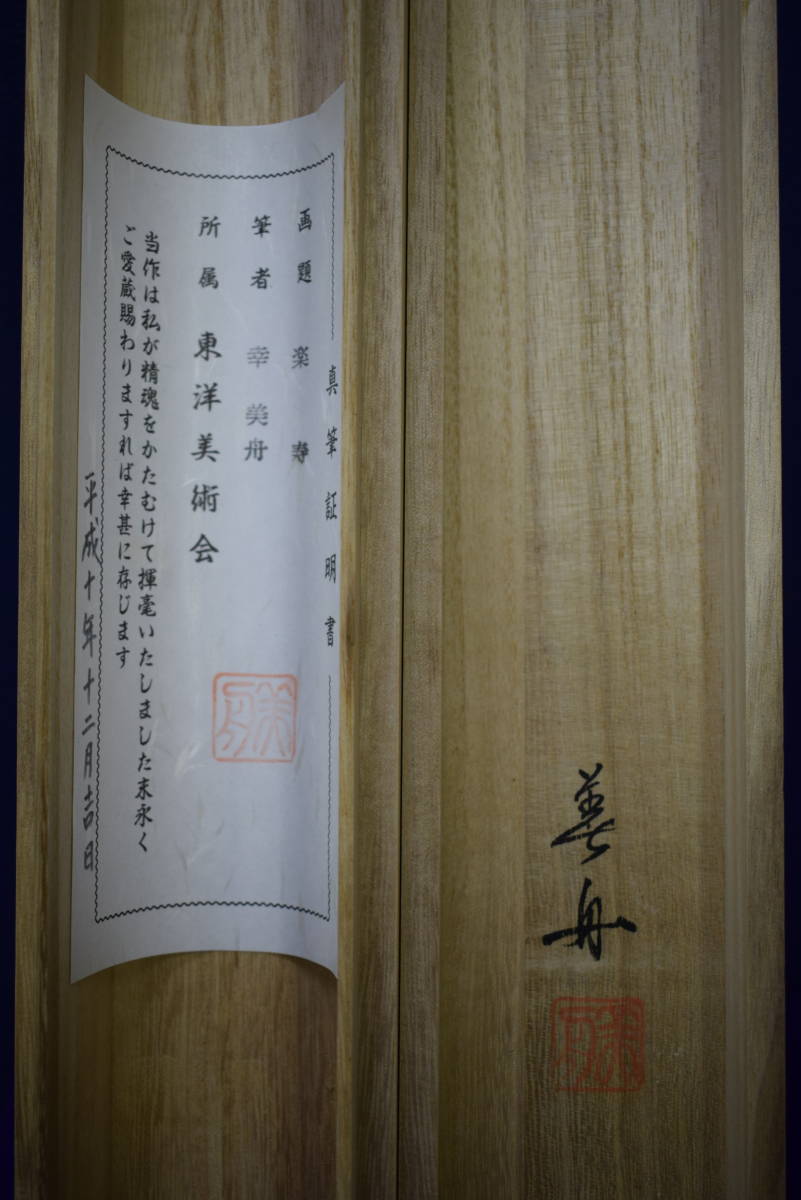 真筆証明書
画題 楽寿
筆者 幸美舟
所属 東洋美術会
当作は私が精魂をかたむけて揮毫いたしました末永く
ご愛蔵賜わりますれば幸甚に存じます
平成十年十二月吉日
美舟
美舟
美舟